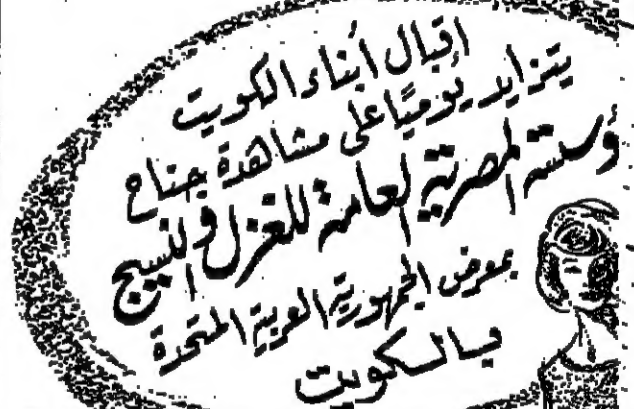 اقبال أبناء الكويت
يتزايد يوميًا على مشاهدة جناح
المؤسسة المصرية العامة للغزل والنسيج
بمعرض الجمهورية العربية المتحدة
بالكويت